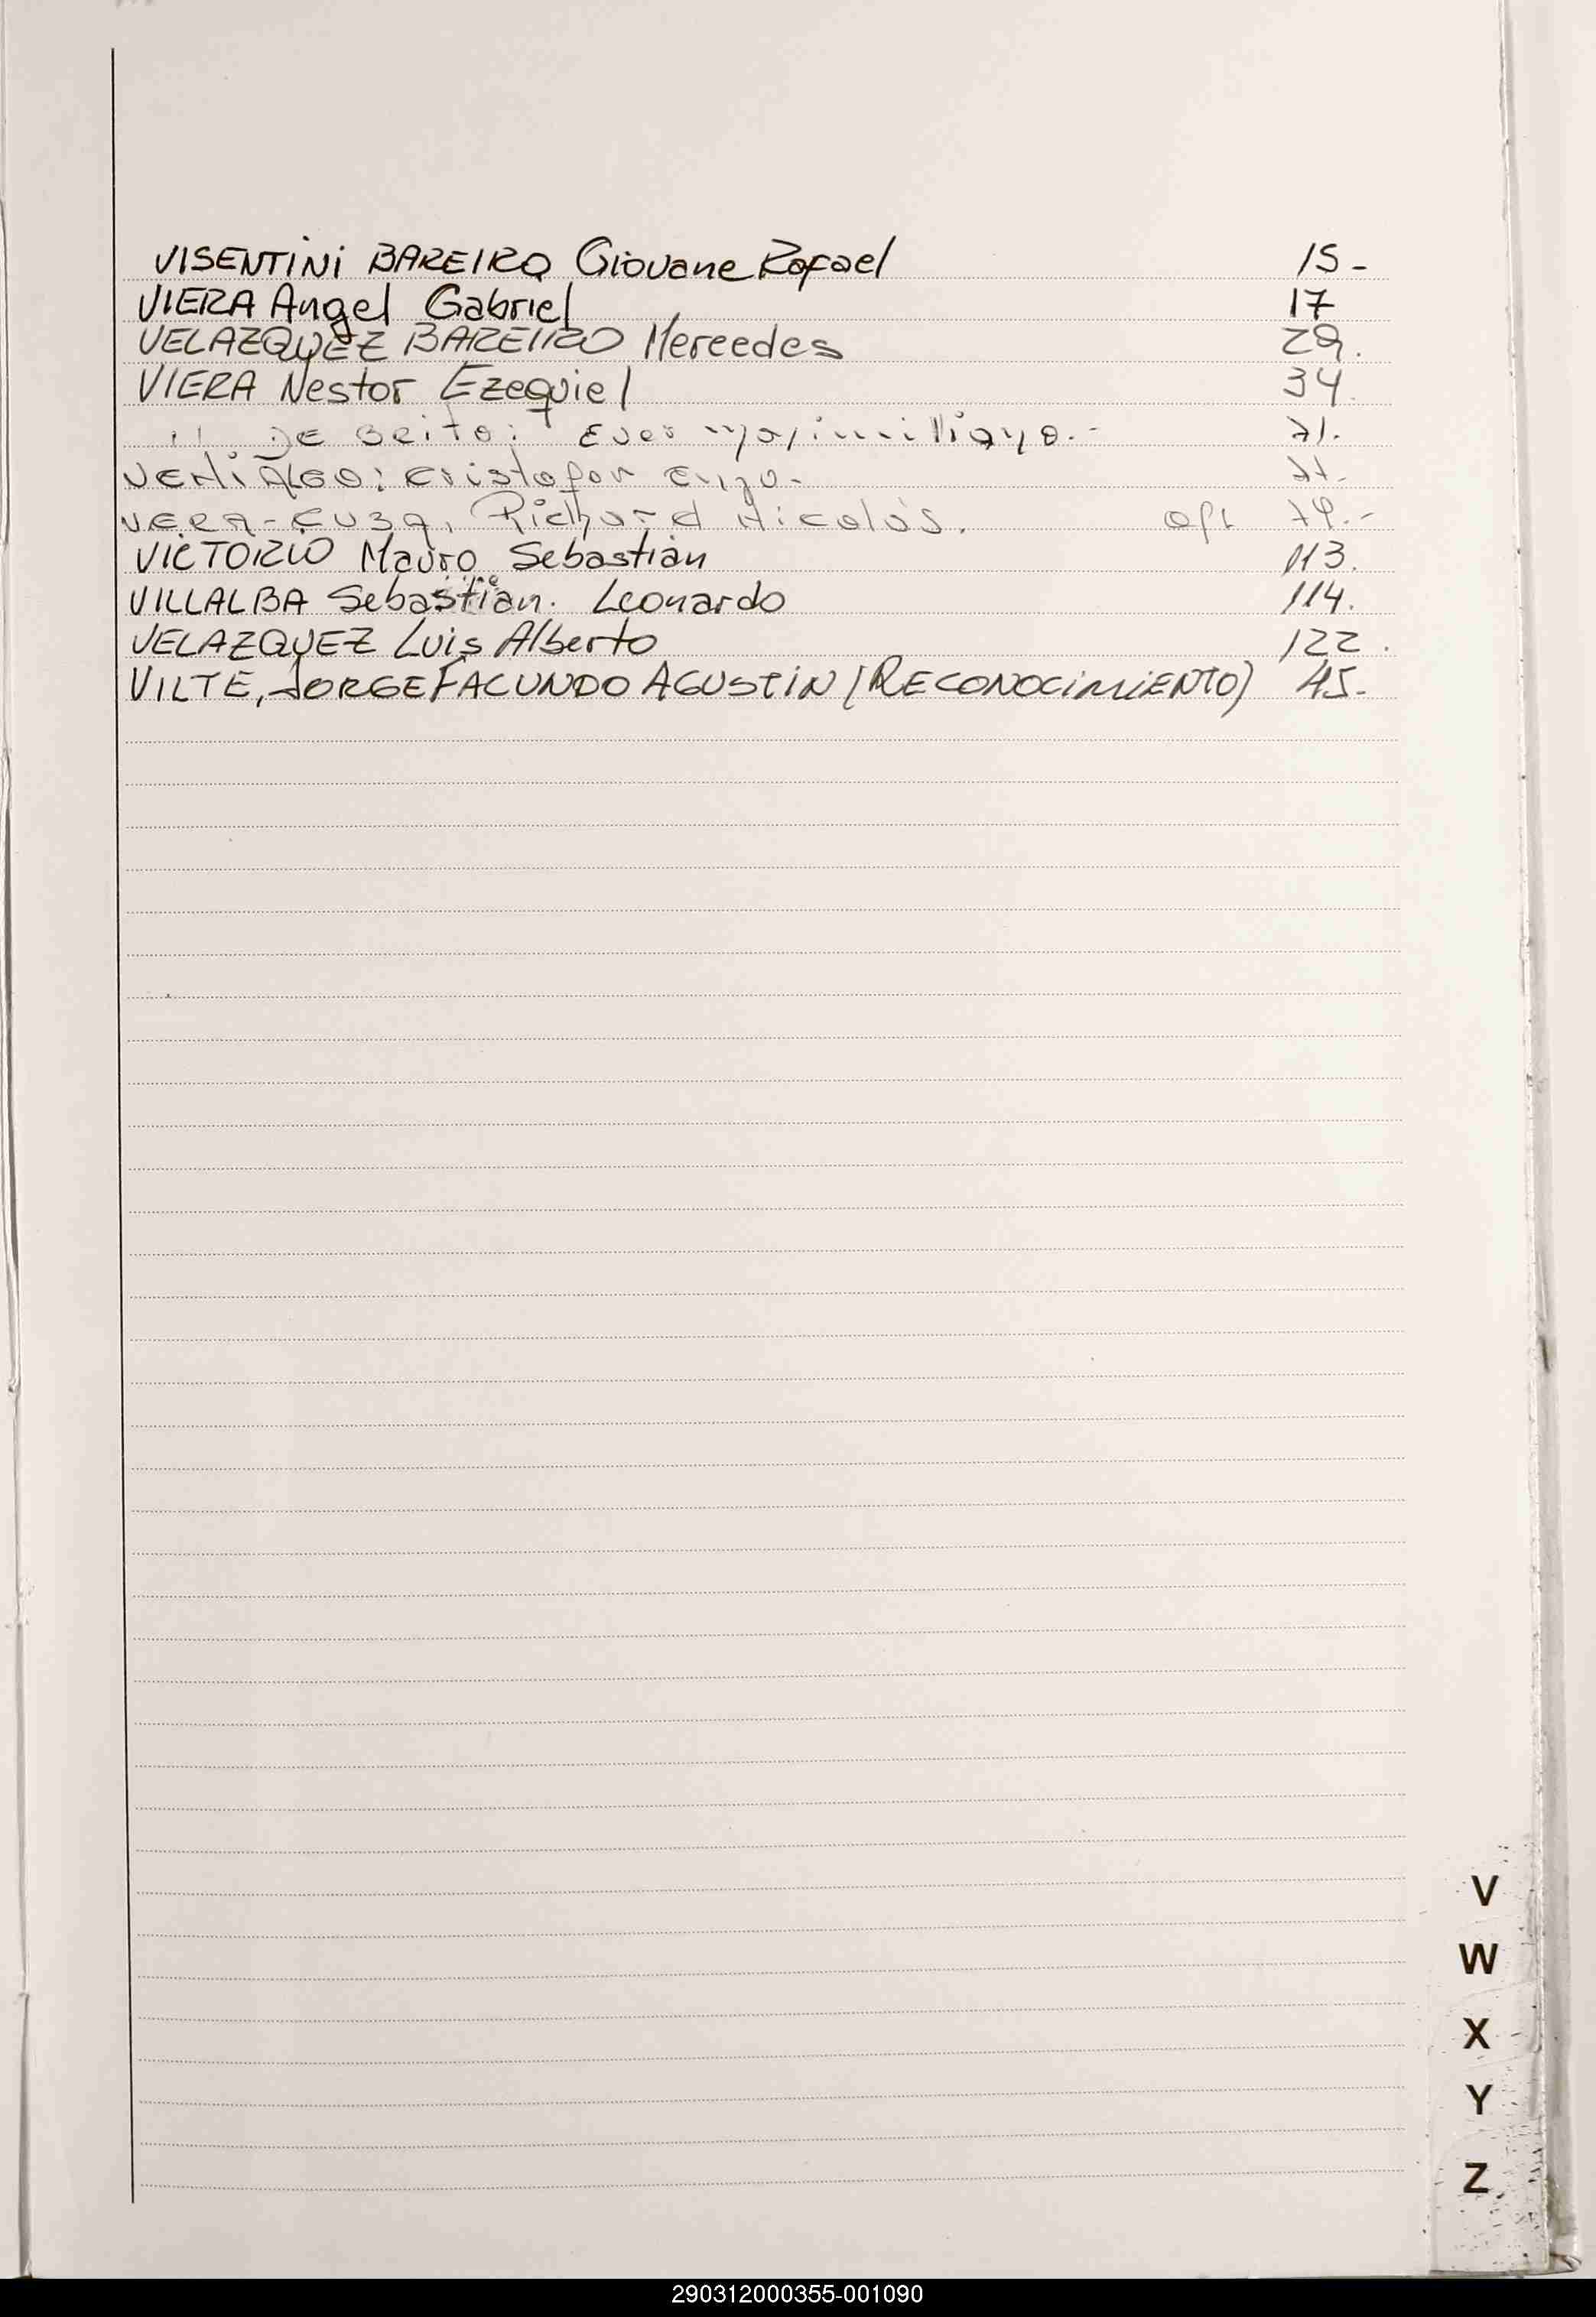 VISENTINI BAREIRO Giovane Rafael 15-
VIERA Angel Gabriel 17
VELAZQUEZ BAREIRO Mercedes 29.
VIERA Nestor Ezequiel 34.
" DE Brito: Ever Maximilliano.- 71.
Cristofor Enzo.-
VERA-, Richard Nicolás. 74.-
VICTORIO Mauro Sebastián 113.
VILLALBA Sebastián. Leonardo 114.
VELAZQUEZ Luis Alberto 122.
VILTE, JORGE FACUNDO AGUSTIN (RECONOCIMIENTO)
V
W
X
Y
Z
290312000355-001090